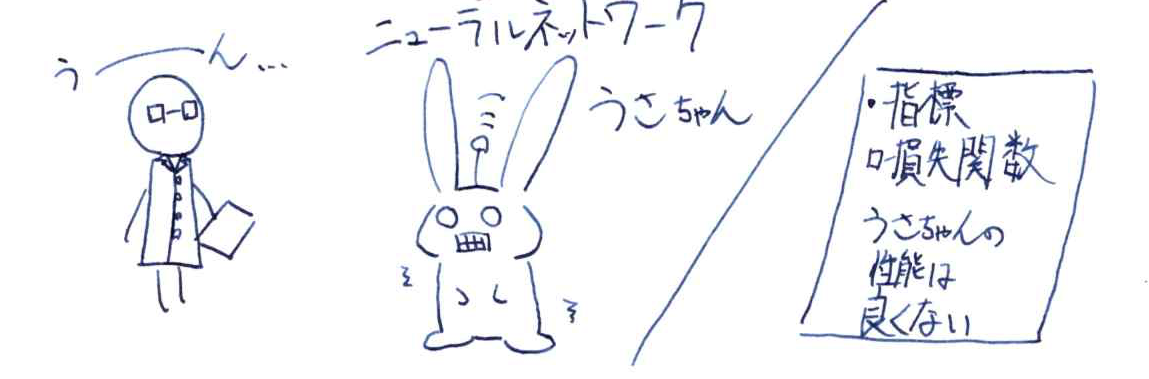 う——ん…
ニューラルネットワーク
うさちゃん
・指標
ロ-損失関数
うさちゃんの
性能は
良くない